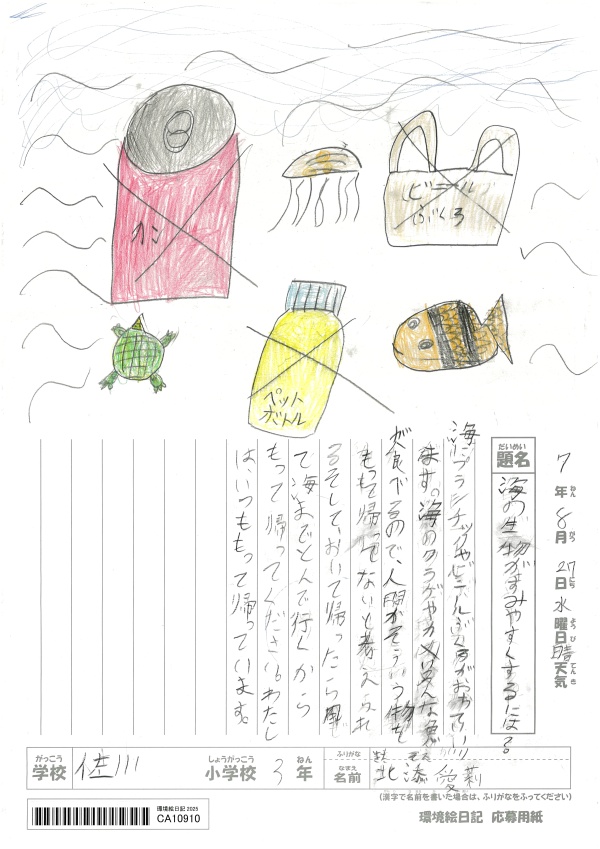 カン
ビニール
ぶくろ
ペット
ボトル
7年8月27日水曜日晴天気
ねん がつ にち ようび てんき
だいめい
題名 海の生物がすみやすくするには?
海にプラスチックやビニールぶくろがおちてい
ます。海のクラゲやカメはみんな魚
が食べるので、人間がそういう物を
もって帰ってないと考えられ
るそして、おいて帰ったら風
で海までとんで行くから
もって帰ってください。わたし
は、いつももって帰っています。
がっこう しょうがっこう ねん
学校 佐川 小学校 3年
ふりがな
なまえ
名前 北添 愛莉
(漢字で名前を書いた場合は、ふりがなをふってください)
環境絵日記 2025
CA10910
環境絵日記 応募用紙